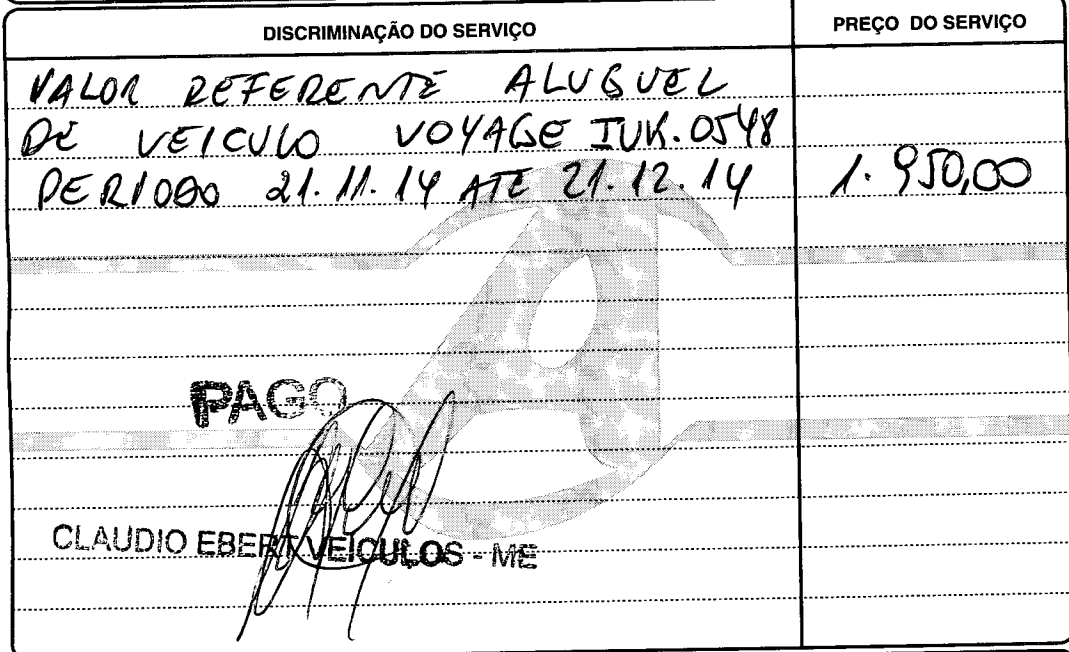 DISCRIMINAÇÃO DO SERVIÇO
PREÇO DO SERVIÇO
VALOR REFERENTE ALUGUEL
DE VEICULO VOYAGE IUK.0548
PERIODO 21.11.14 ATE 21.12.14 1.950,00
PAGO
CLAUDIO EBERT VEICULOS - ME